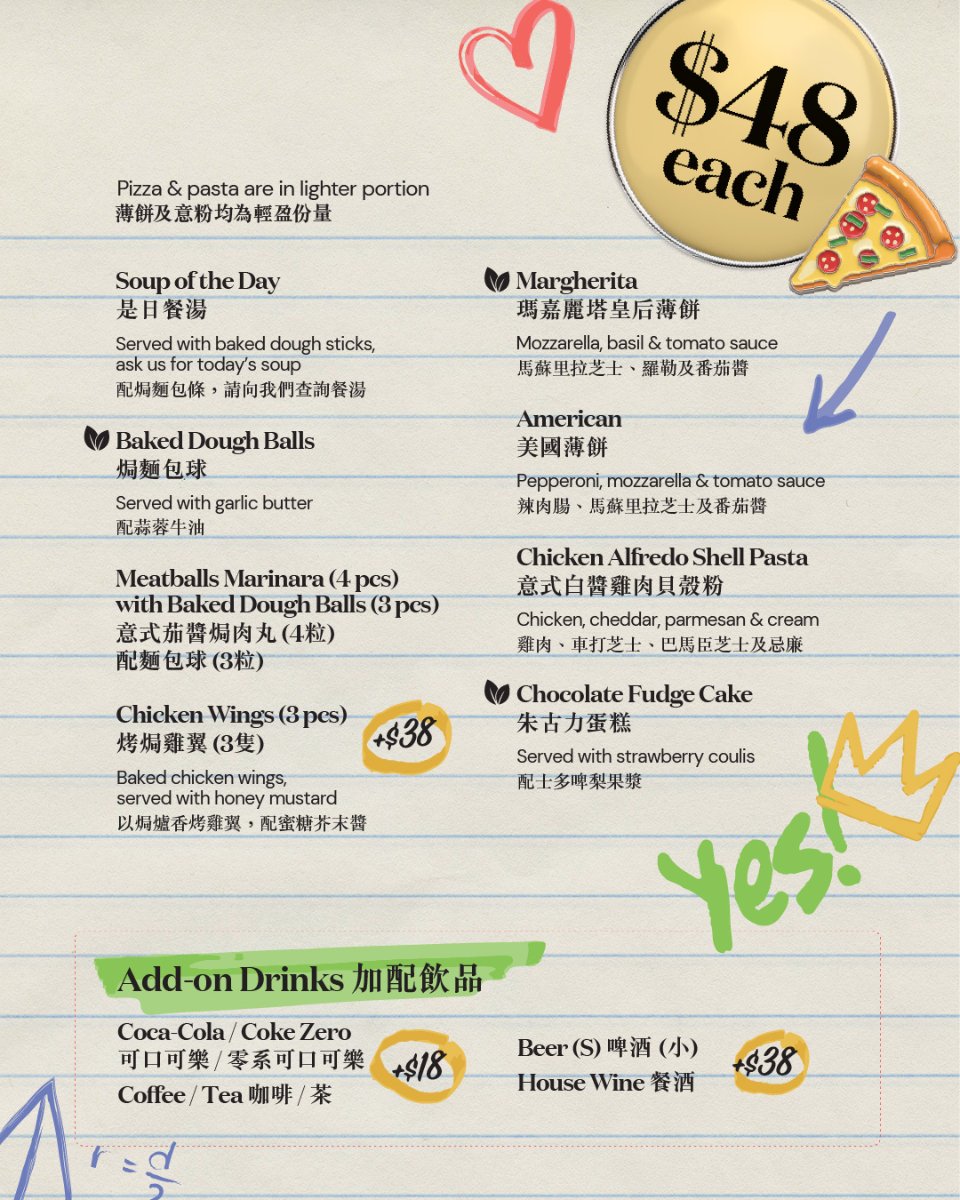 $48
each
Pizza & pasta are in lighter portion
薄餅及意粉均為輕盈份量
Soup of the Day
是日餐湯
Served with baked dough sticks,
ask us for today's soup
配焗麵包條，請向我們查詢餐湯
Baked Dough Balls
焗麵包球
Served with garlic butter
配蒜蓉牛油
Meatballs Marinara (4 pcs)
with Baked Dough Balls (3 pcs)
意式茄醬焗肉丸 (4粒)
配麵包球 (3粒)
Chicken Wings (3 pcs)
烤焗雞翼 (3隻)
+$38
Baked chicken wings,
served with honey mustard
以焗爐香烤雞翼，配蜜糖芥末醬
Margherita
瑪嘉麗塔皇后薄餅
Mozzarella, basil & tomato sauce
馬蘇里拉芝士、羅勒及番茄醬
American
美國薄餅
Pepperoni, mozzarella & tomato sauce
辣肉腸、馬蘇里拉芝士及番茄醬
Chicken Alfredo Shell Pasta
意式白醬雞肉貝殼粉
Chicken, cheddar, parmesan & cream
雞肉、車打芝士、巴馬臣芝士及忌廉
Chocolate Fudge Cake
朱古力蛋糕
Served with strawberry coulis
配士多啤梨果漿
Yes!
Add-on Drinks 加配飲品
Coca-Cola / Coke Zero
可口可樂 / 零系可口可樂
Coffee / Tea 咖啡 / 茶
+$18
Beer (S) 啤酒 (小)
House Wine 餐酒
+$38
r = d